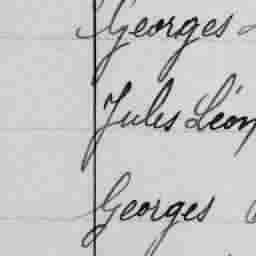 Georges
Jules Léon
Georges